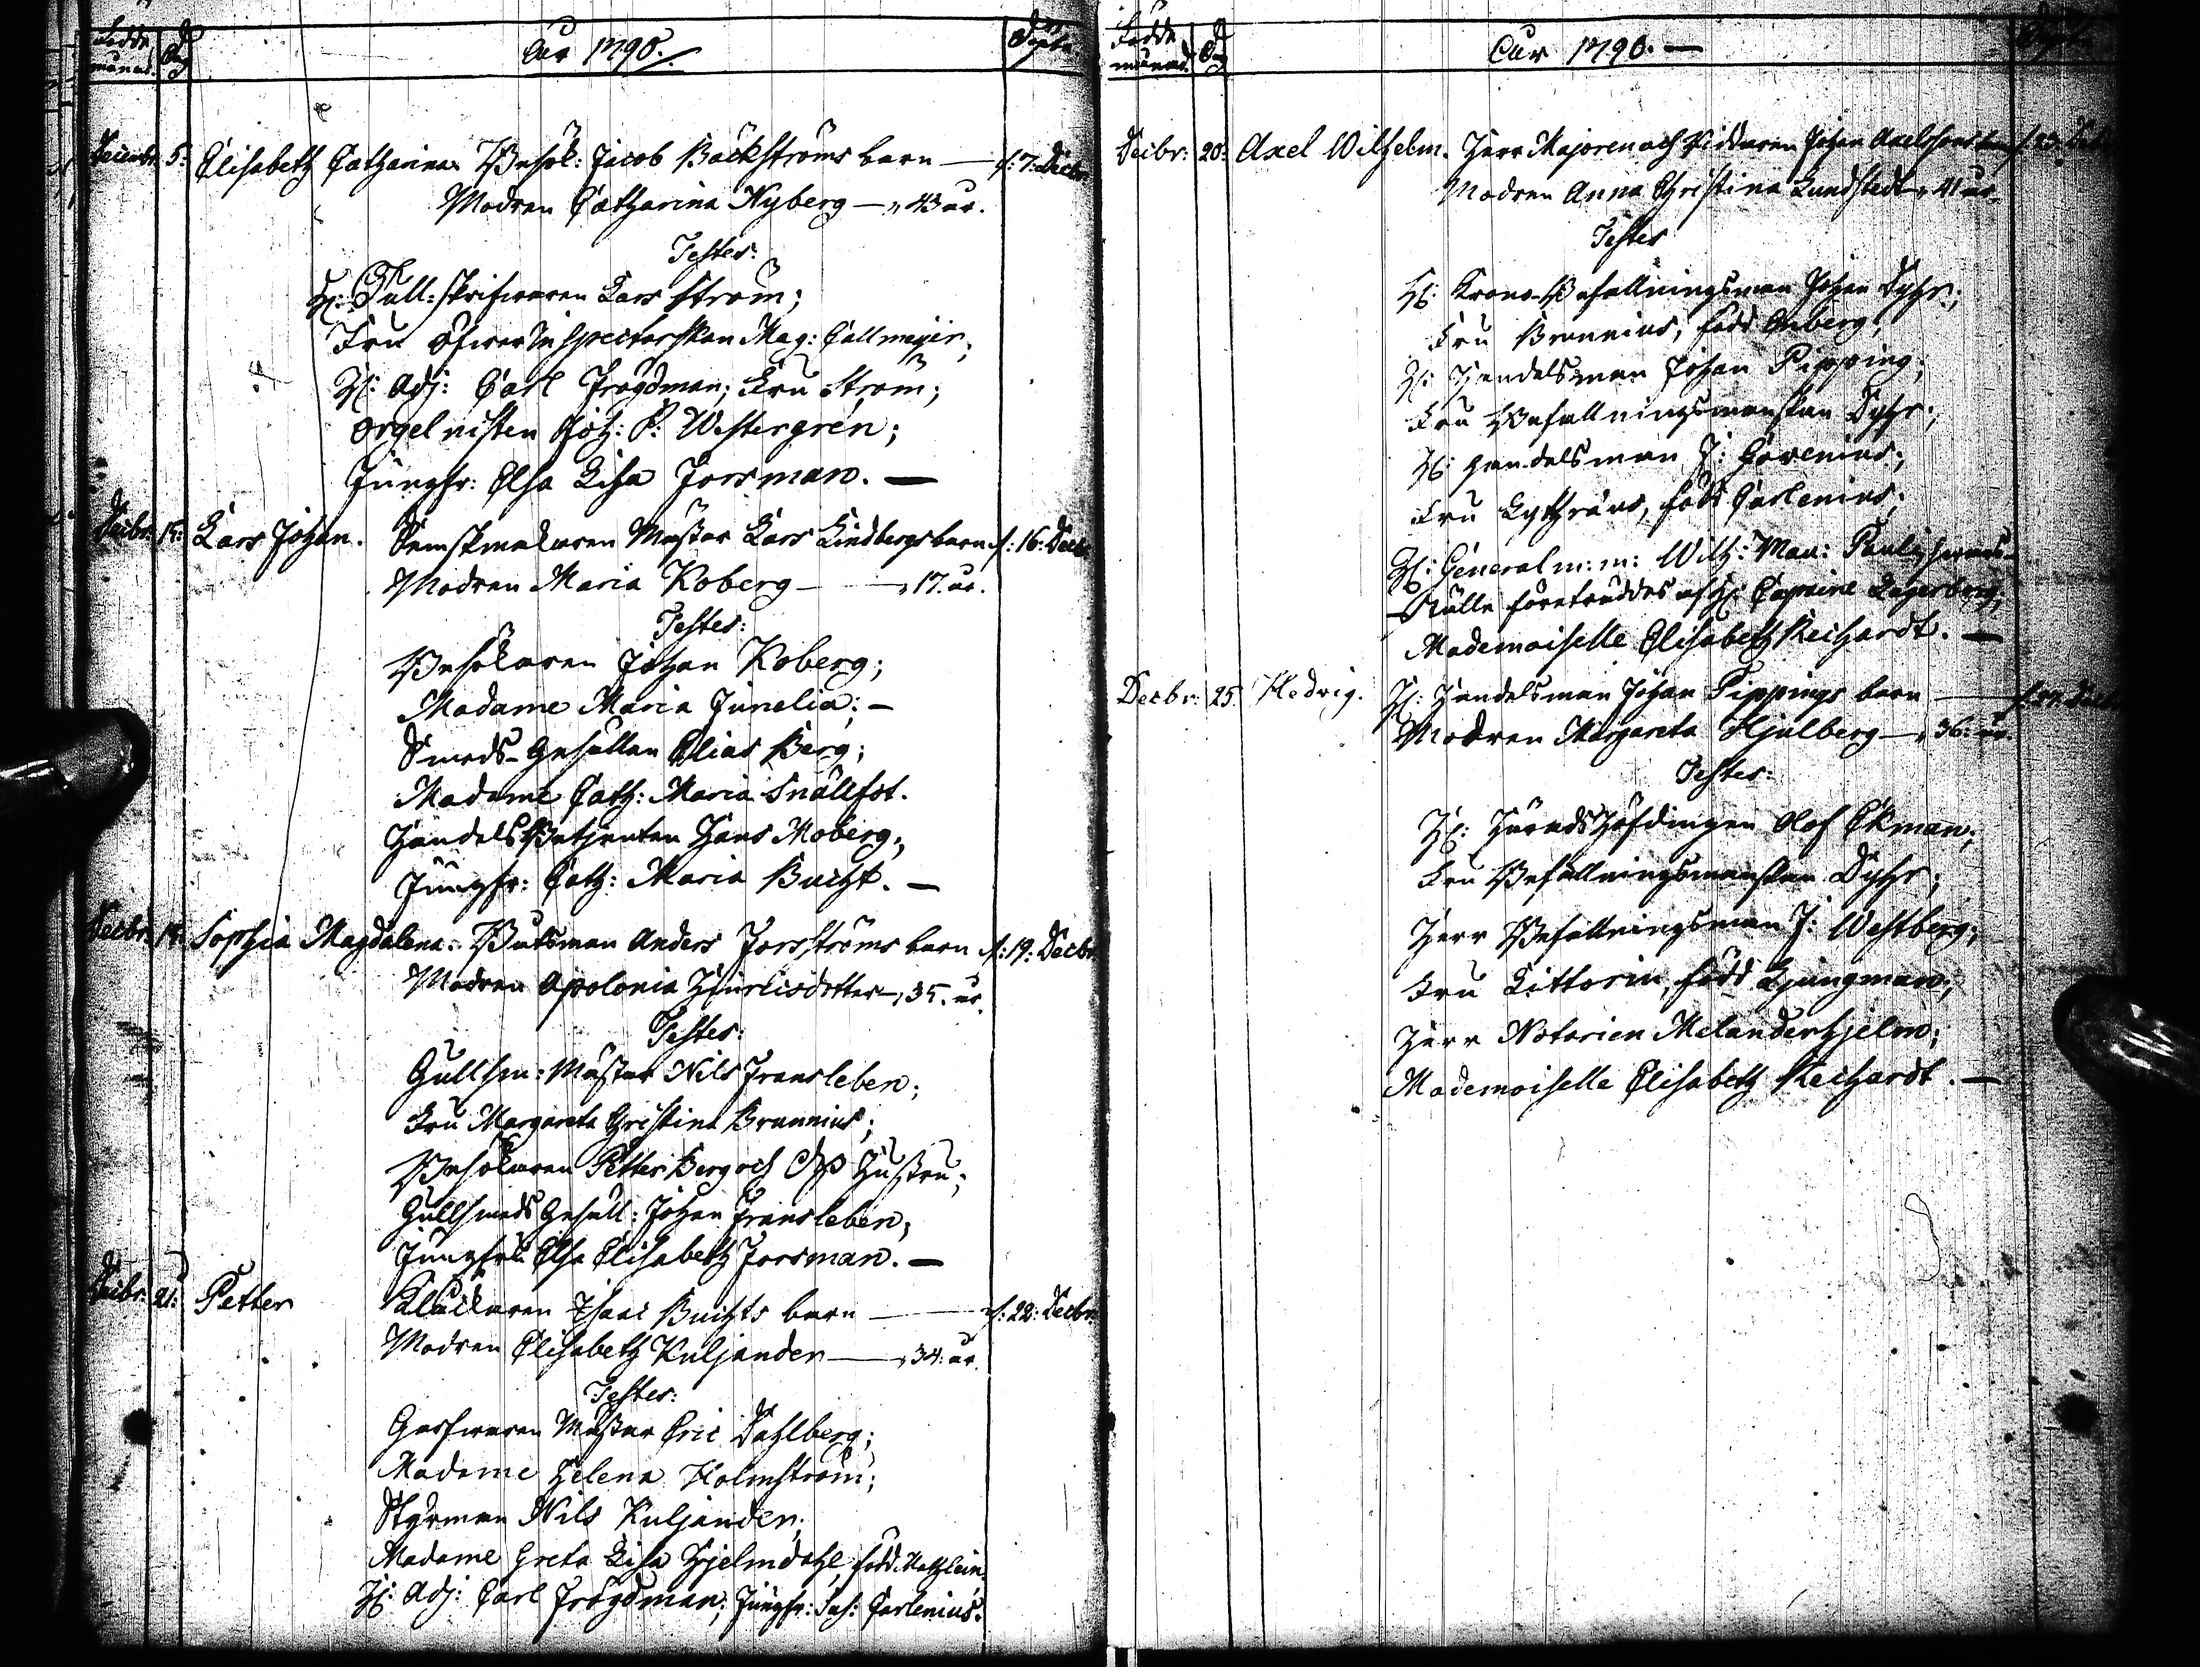 Födde månad. Dag Åhr 1790. Döpte.
Decembr: 5: Elisabeth Catharina. Besök: Jacob Bäckströms barn — d: 7: Decbr
Modren Catharina Nyberg — 43 år.
Testes:
H: Tull-skrifwaren Lars Ström;
Fru Öfwer Inspectorskan Mag: Callmeijer;
H: Adj: Carl Frogdman; Fru Ström;
Orgelnisten Joh: P: Westergrén;
Jungfr: Elsa Lisa Forsman. —
Decbr: Lars Johan. Semskmakaren Mästar Lars Lindbergs barn d: 16: Decbr
Modren Maria Koberg — 17. år.
Testes:
Besökaren Johan Koberg;
Madame Maria Junelia; —
Smeds-Gesällen Elias Berg;
Madame Cath: Maria Snällfot.
Handels Betjenten Hans Moberg;
Jungfr: Cath: Maria Bucht. —
Decbr: Sophia Magdalena. Båtsman Anders Forsströms barn d: 19: Decbr
Modren Apolonia Hinricsdotter — 35. år.
Testes:
Gullsm: Mästar Nils Fransleben;
Fru Margareta Christina Brunnius;
Besökaren Petter Berg och dess Hustru;
Gullsmeds Gesäll: Johan Fransleben;
Jungfrü Elsa Elisabeth Forsman. —
Decbr: 21: Petter Klåckaren Isaac Buchts barn — d: 22: Decbr
Modren Elisabeth Kuljander — 34: år.
Testes:
Garfwaren Mästar Eric Dahlberg;
Madame Helena Holmström;
Styrman Nils Kuljander;
Madame Greta Lisa Hjelmdahl, född
H: Adj: Carl Frogdman; Jungfr: Carlenius.
Födde månad. Dag Åhr 1790. —
Decbr: 20: Axel Wilhelm. Herr Majoren och Riddaren Johan Axelssons barn d: 23: Decbr
Modren Anna Christina Lundstedt — 41 år.
Testes
H: Krono-Befallningsman Johan Dyhr;
Fru Brunnius, född Enberg;
H: Handelsman Johan Pipping;
Fru Befallningsmanskan Dyhr;
H: Handelsman J: Corvenius;
Fru Lythräus, född Carlenius;
H: General m: m: Wilh: Mau: Pauli, hwars
ställe företräddes af H: Capitaine Lagerborg;
Mademoiselle Elisabeth Reichardt. —
Decbr: 25. Hedvig. H: Handelsman Johan Pippings barn — d: 27: Decbr
Modren Margareta Hjulberg — 36: år.
Testes:
H: Häradshöfdingen Olof Ekman;
Fru Befallningsmanskan Dyhr;
Herr Befallningsman J: Westberg;
Fru Littorin, född Ljungman;
Herr Notarien Melanderhjelm;
Mademoiselle Elisabeth Reichardt. —